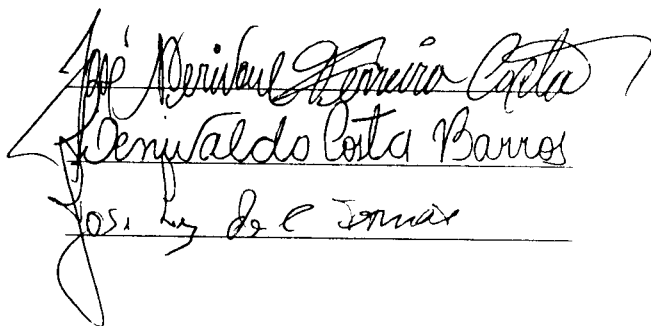 José Nerivan Ferreira Costa
Denivaldo Costa Barros
José Luz de